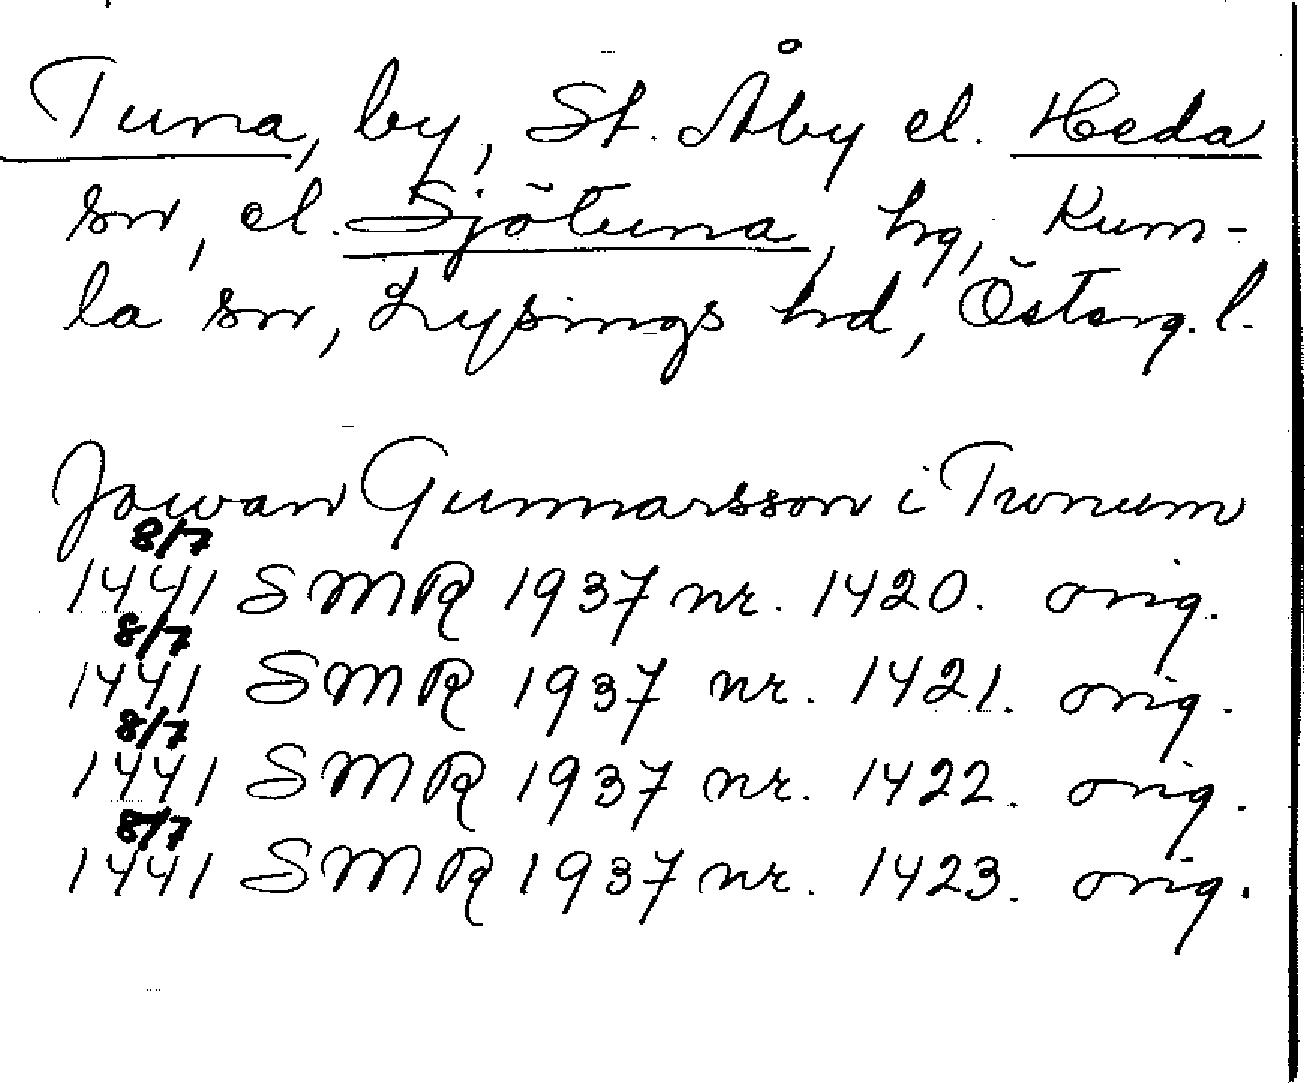 Tuna, by, St. Åby el. Heda
sn, el. Sjötuna, hg, Kum-
la sn, Lysings hd, Österg. l.
Jowan Gunnarsson i Twnum
8/7
1441 SMR 1937 nr. 1420. orig.
8/7
1441 SMR 1937 nr. 1421. orig.
8/7
1441 SMR 1937 nr. 1422. orig.
8/7
1441 SMR 1937 nr. 1423. orig.